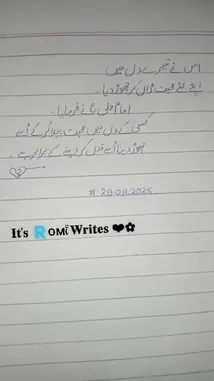 اس نے تیرے دل میں
اپنے لئے محبت ڈال کر چھوڑ دیا۔
امام علی ع نے فرمایا۔
کسی کے دل میں محبت پیدا کر کے اُسے
چھوڑ دینا اُسے قتل کر دینے کے برابر ہے۔
# 28.08.2025
It's ROMI Writes ❤✿